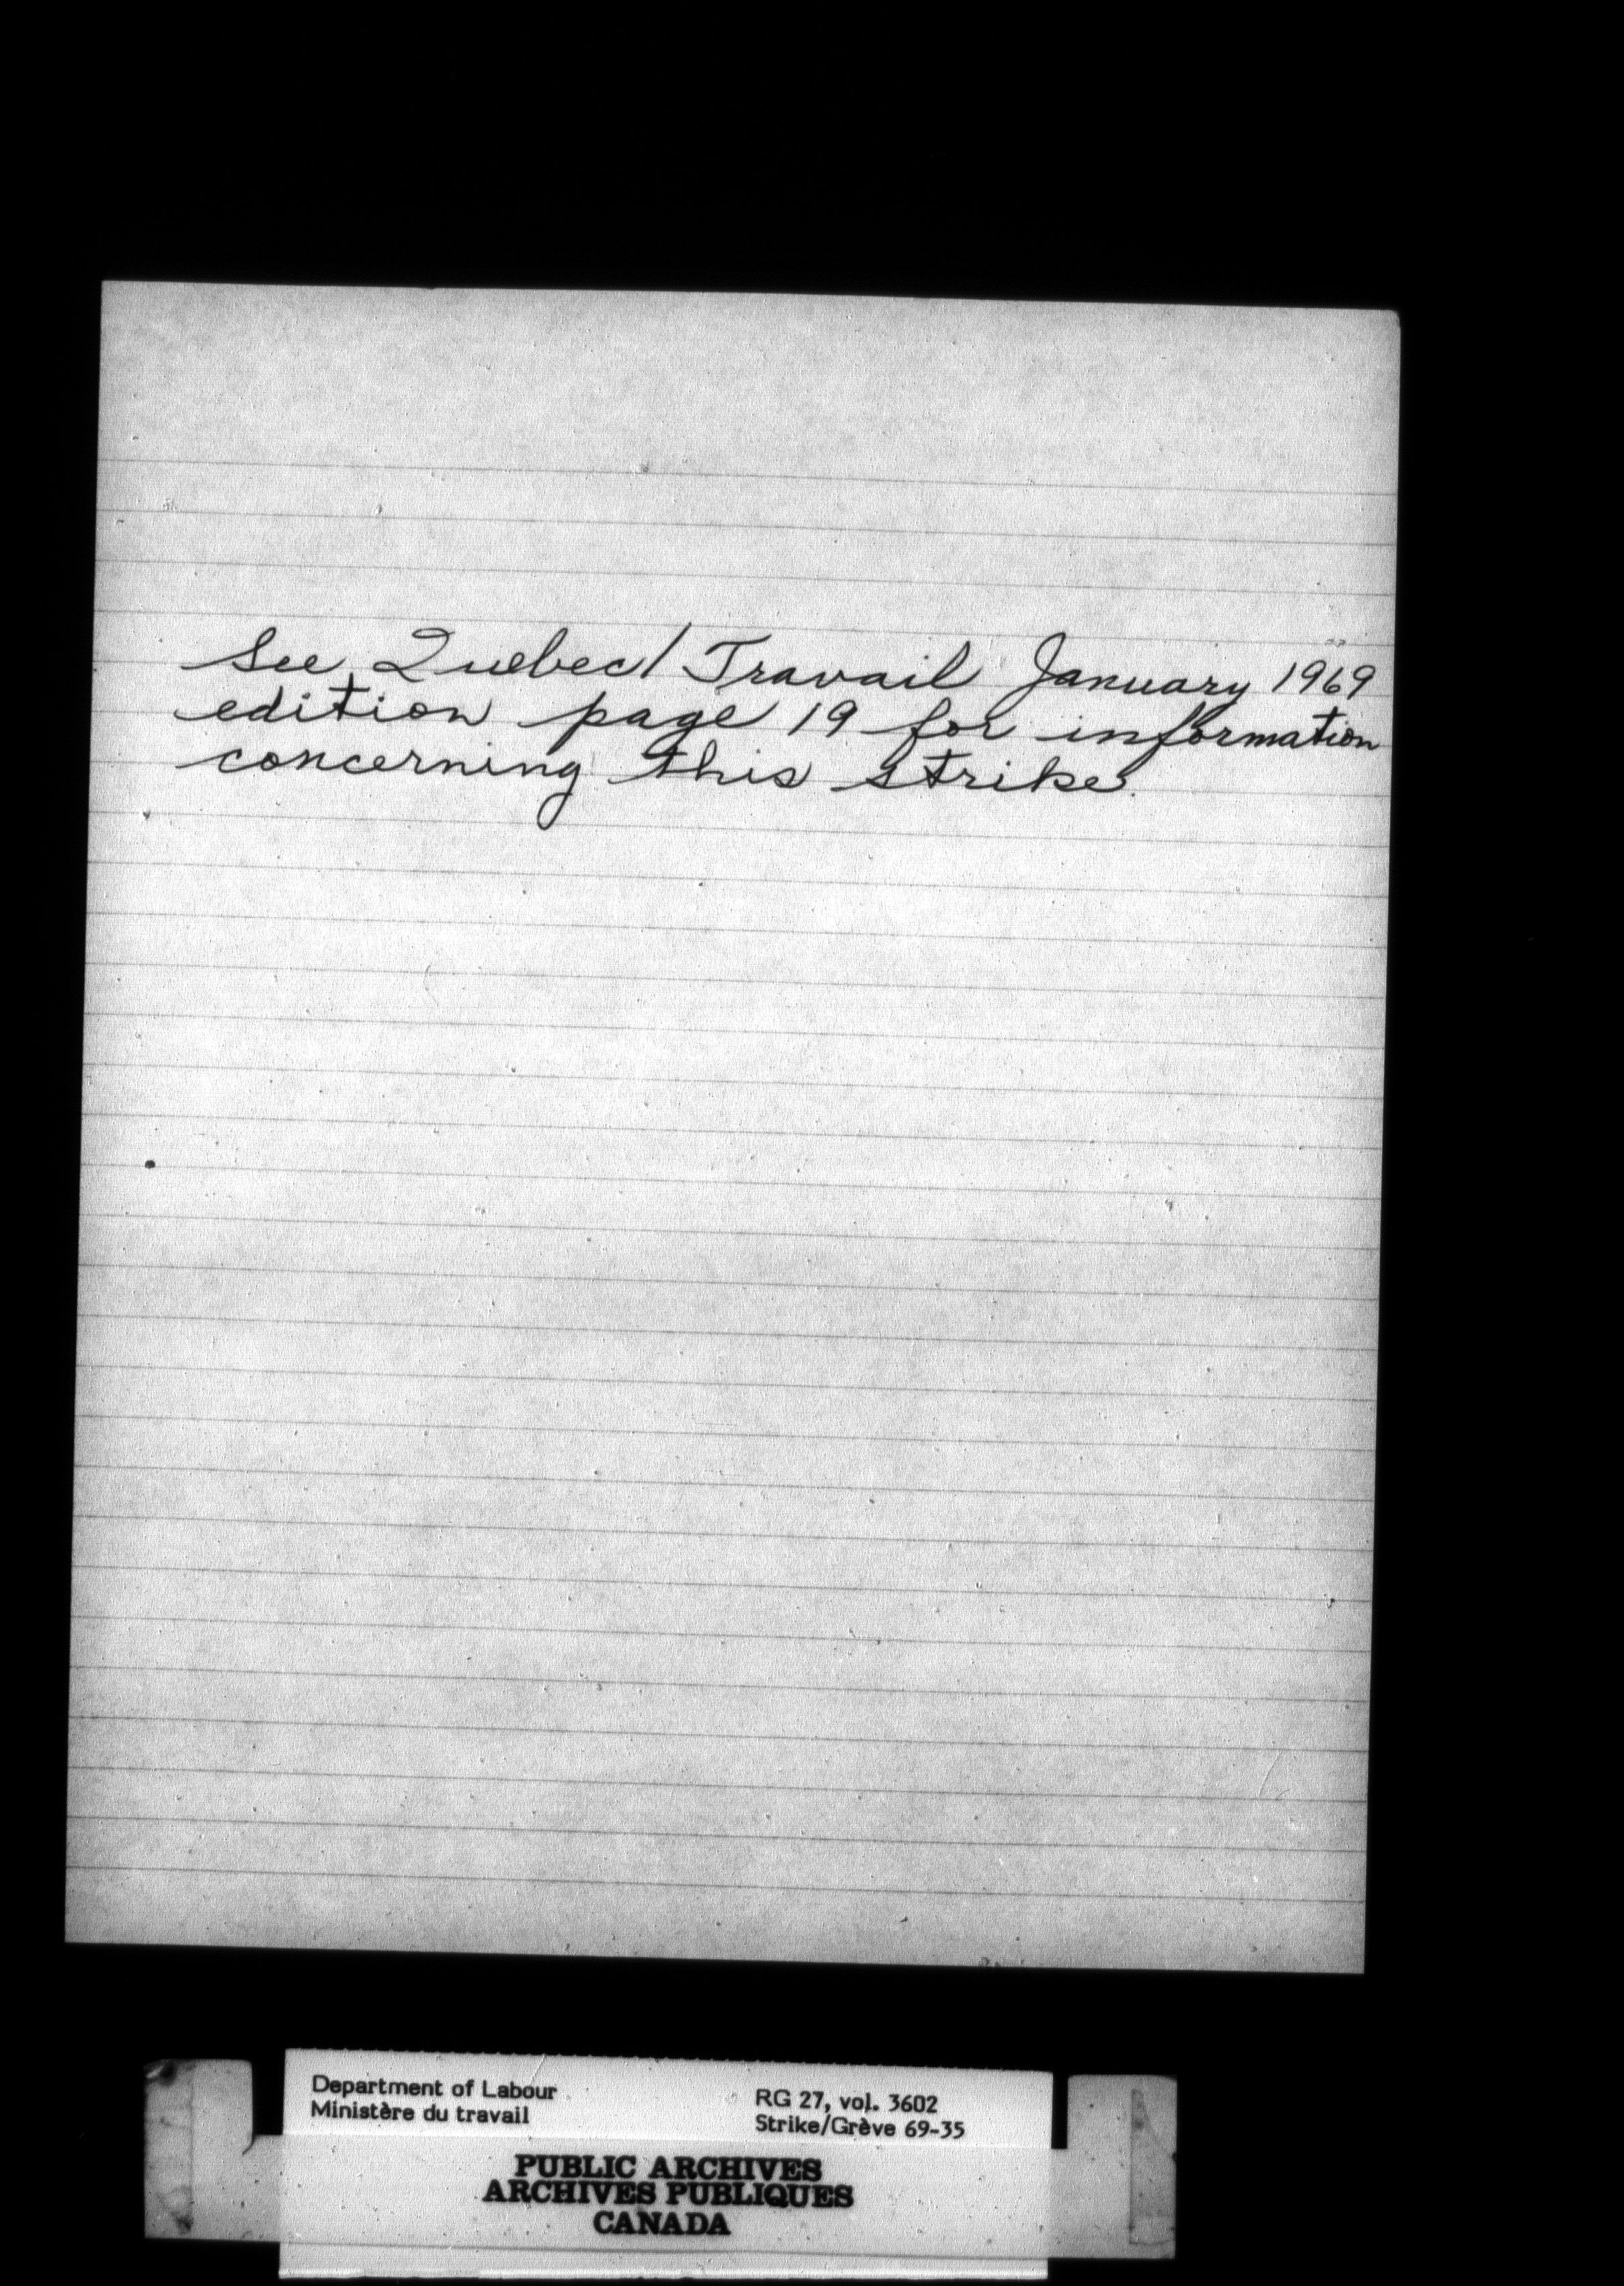 See Quebec/Travail January 1969
edition page 19 for information
concerning this strike.
Department of Labour
Ministère du travail
RG 27, vol. 3602
Strike/Grève 69-35
PUBLIC ARCHIVES
ARCHIVES PUBLIQUES
CANADA